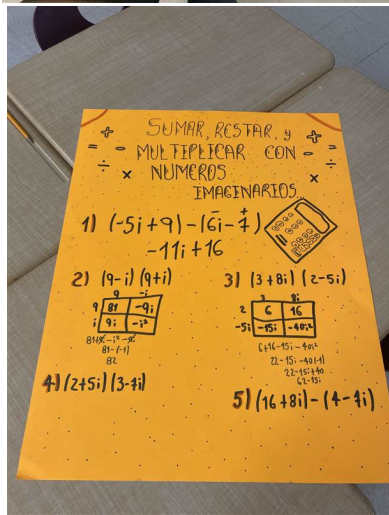 SUMAR, RESTAR, y
MULTIPLICAR CON
NUMEROS
IMAGINARIOS
1) (-5i+9)-(6i-7)
- +
-11i+16
2) (9-i)(9+i)
9 -i
9 81 -9i
i 9i -i²
81+9i-i²-9i
81-(-1)
82
3) (3+8i)(2-5i)
3 8i
2 6 16
-5i -15i -40i²
6+16-15i-40i²
22-15i-40(-1)
22-15i+40
62-15i
4) (2+5i)(3-7i)
5) (16+8i)-(4-7i)